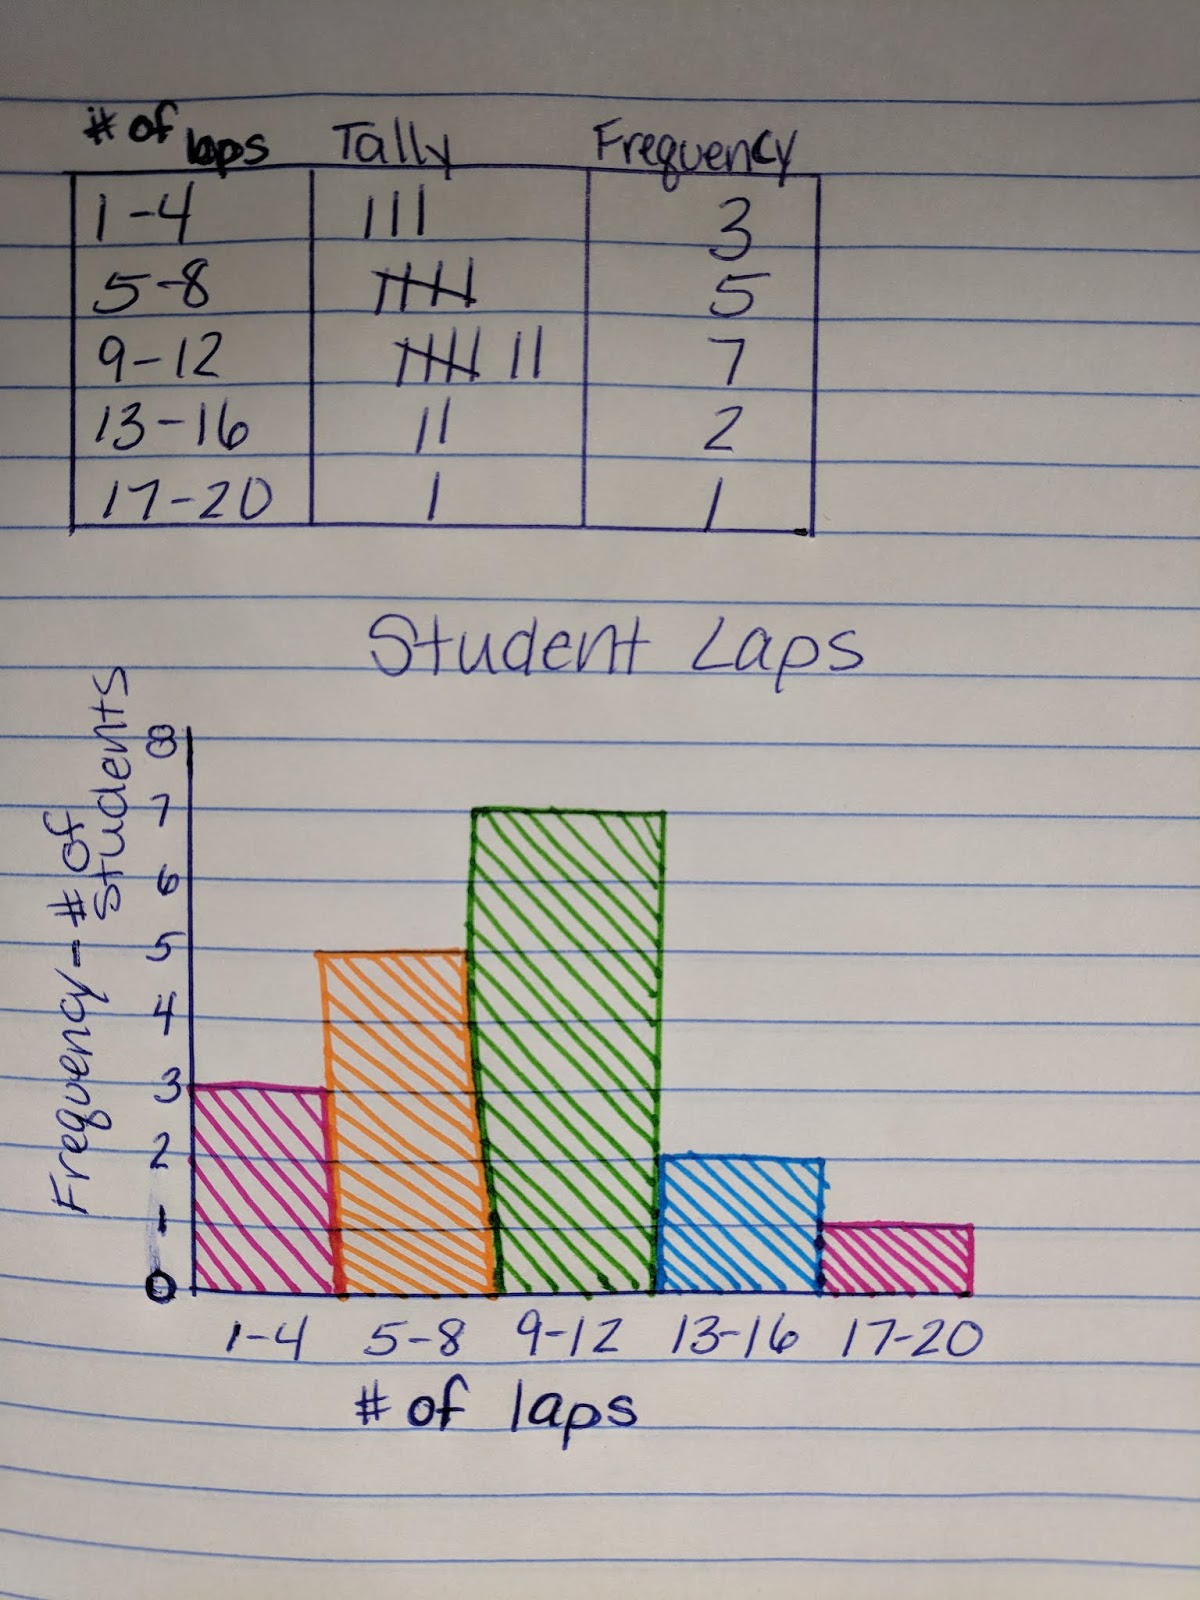 # of laps Tally Frequency
1-4 III 3
5-8 IIII 5
9-12 IIII II 7
13-16 II 2
17-20 I 1
Student Laps
Frequency - # of
students
8
7
6
5
4
3
2
1
0
1-4 5-8 9-12 13-16 17-20
# of laps